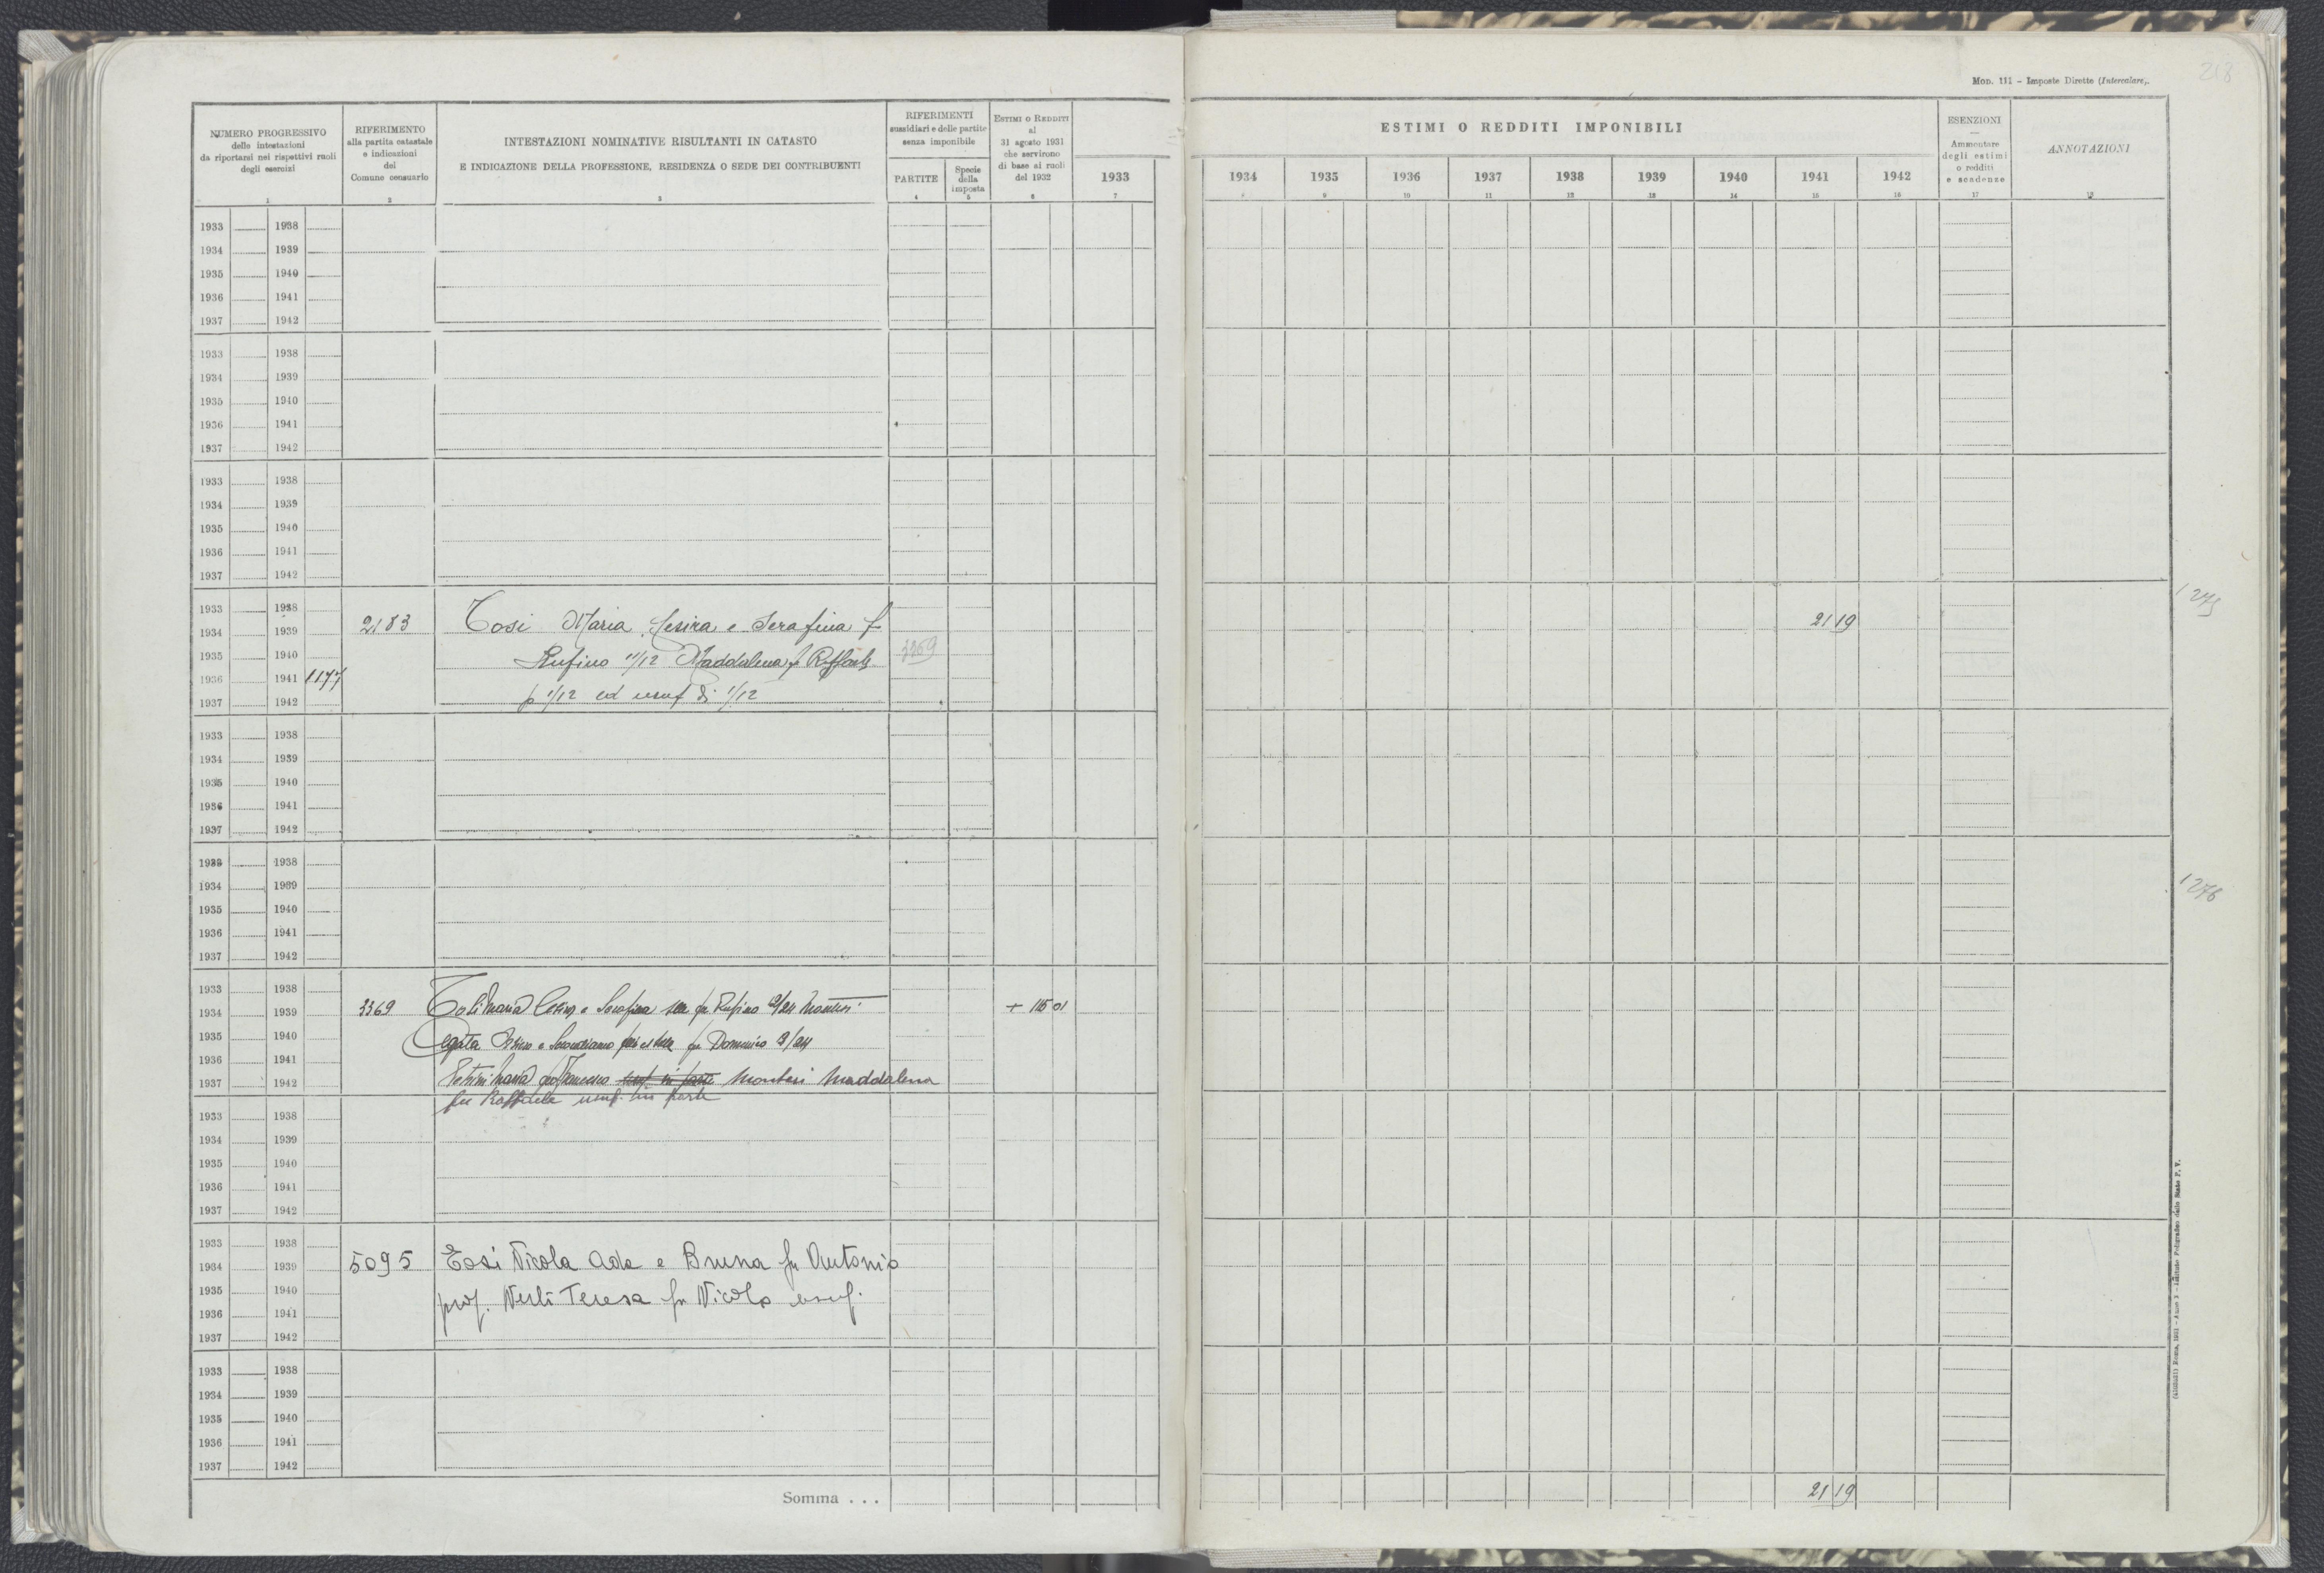 Mon. 111 - Imposte Dirette (Intercalare).
218
NUMERO PROGRESSIVO
delle intestazioni
da riportarsi nei rispettivi ruoli
degli esercizi
1
RIFERIMENTO
alla partita catastale
e indicazioni
del
Comune censuario
2
INTESTAZIONI NOMINATIVE RISULTANTI IN CATASTO
E INDICAZIONE DELLA PROFESSIONE, RESIDENZA O SEDE DEI CONTRIBUENTI
3
RIFERIMENTI
sussidiari e delle partite
senza imponibile
PARTITE
4
Specie
della
imposta
5
ESTIMI O REDDITI
al
31 agosto 1931
che servirono
di base ai ruoli
del 1932
6
1933
7
ESTIMI O REDDITI IMPONIBILI
1934 1935 1936 1937 1938 1939 1940 1941 1942
8 9 10 11 12 13 14 15 16
ESENZIONI
—
Ammontare
degli estimi
o redditi
e scadenze
17
ANNOTAZIONI
18
1933 1938
1934 1939
1935 1940
1936 1941
1937 1942
1933 1938
1934 1939
1935 1940
1936 1941
1937 1942
1933 1938
1934 1939
1935 1940
1936 1941
1937 1942
1933 1938
1934 1939 2183 Tosi Maria, Cesira e Serafina f 21 19
1935 1940 Rufino 11/12 Maddalena f Raffaele 3369
1936 1941 1177
1937 1942 p 1/12 ed usuf di 1/12
1275
1933 1938
1934 1939
1935 1940
1936 1941
1937 1942
1933 1938
1934 1939
1935 1940
1936 1941
1937 1942
1276
1933 1938
1934 1939 3369 Tosi Maria Cesira e Serafina fu Rufino /24 Monteri + 115 01
1935 1940 Agata e fu Domenico 3/24
1936 1941
1937 1942 Maria fu Francesco usuf in parte Monteri Maddalena
fu Raffaele usuf. in parte
1933 1938
1934 1939
1935 1940
1936 1941
1937 1942
1933 1938
1934 1939 5095 Tosi Nicola Ada e Bruna fu Antonio
1935 1940 prop. Nerli Teresa fu Nicola usuf.
1936 1941
1937 1942
1933 1938
1934 1939
1935 1940
1936 1941
1937 1942
Somma . . . 21 19